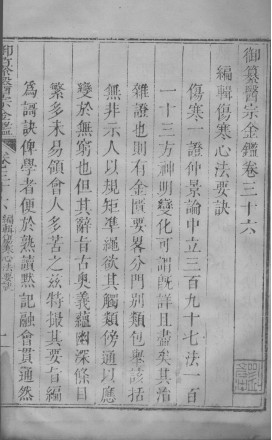 御纂醫宗金鑑卷三十六
編輯傷寒心法要訣
傷寒一證仲景論中立三百九十七法一百
一十三方神明變化可謂既詳且盡矣其治
雜證也則有金匱要畧分門別類包舉該括
無非示人以規矩準繩欲其觸類傍通以應
變於無窮也但其辭㫖古奧義蘊幽深條目
繁多未易領會人多苦之兹特撮其要㫖編
為謌訣俾學者便於熟讀默記融會貫通然
御纂醫宗金鑑 卷三十六 編輯傷寒心法要訣 一